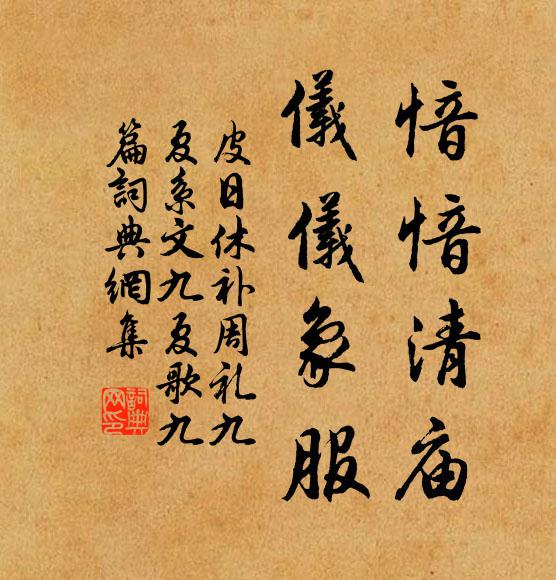 愔愔清庙
儀儀象服
皮日休补周礼九
夏系文九夏歌九
篇詞典網集
詞典
网印